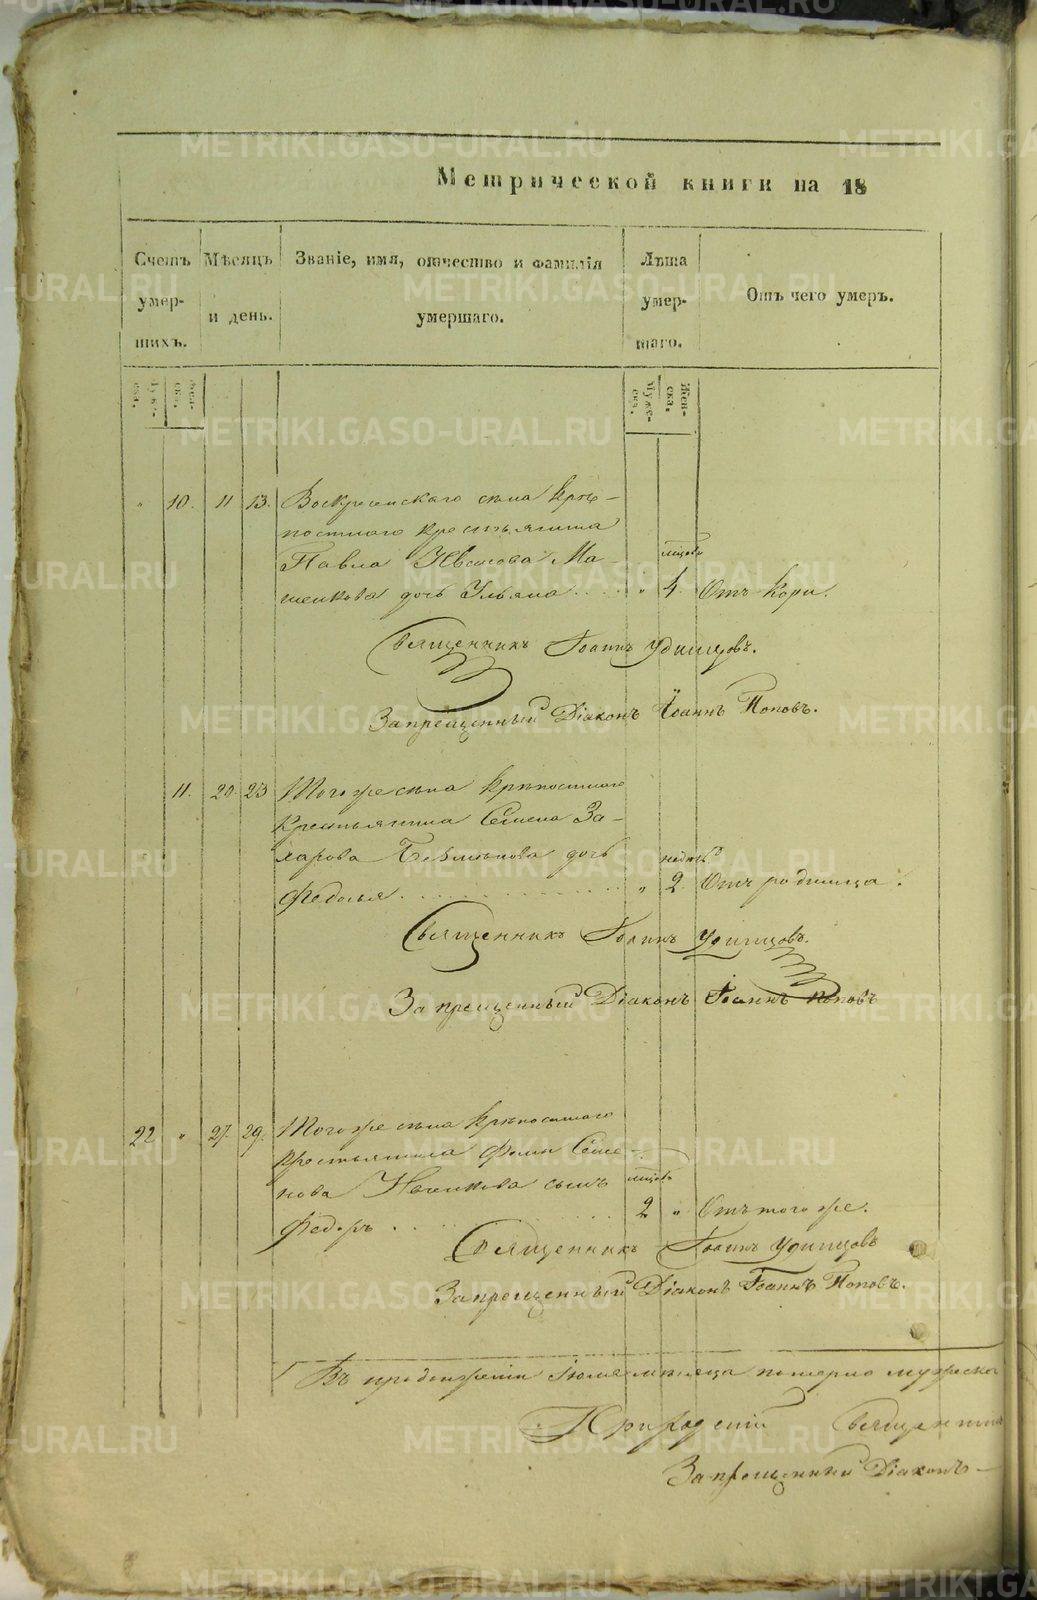 Метрической книги на 18
Счетъ умершихъ.
Мѣсяцъ и день.
Званіе, имя, отчество и фамилія умершаго.
Лѣта умершаго.
Отъ чего умеръ.
Мужеска.
Женска.
Мужеска.
Женска.
" 10. 11 13. Воскресенскаго села крѣ-
постнаго крестьянина
Павла Иванова Ма- мѣсяцъ
шенкова дочь Ульяна " 4. Отъ кори.
Священникъ Іоаннъ Удинцовъ.
Запрещенный Діаконъ Іоаннъ Поповъ.
11. 20. 23 Того же села крѣпостнаго
крестьянина Семена За-
харова дочь недѣль
Федосья " 2. Отъ родимца.
Священникъ Іоаннъ Удинцовъ.
Запрещенный Діаконъ Іоаннъ Поповъ
22 " 27. 29. Того же села крѣпостнаго
крестьянина Фомы Семе-
нова сынъ мѣсяцъ
Федоръ 2 " Отъ того же.
Священникъ Іоаннъ Удинцовъ
Запрещенный Діаконъ Іоаннъ Поповъ.
Въ продолженіи Іюля мѣсяца померло мужеска
Приходскій Священник
Запрещенный Діаконъ
METRIKI.GASO-URAL.RU